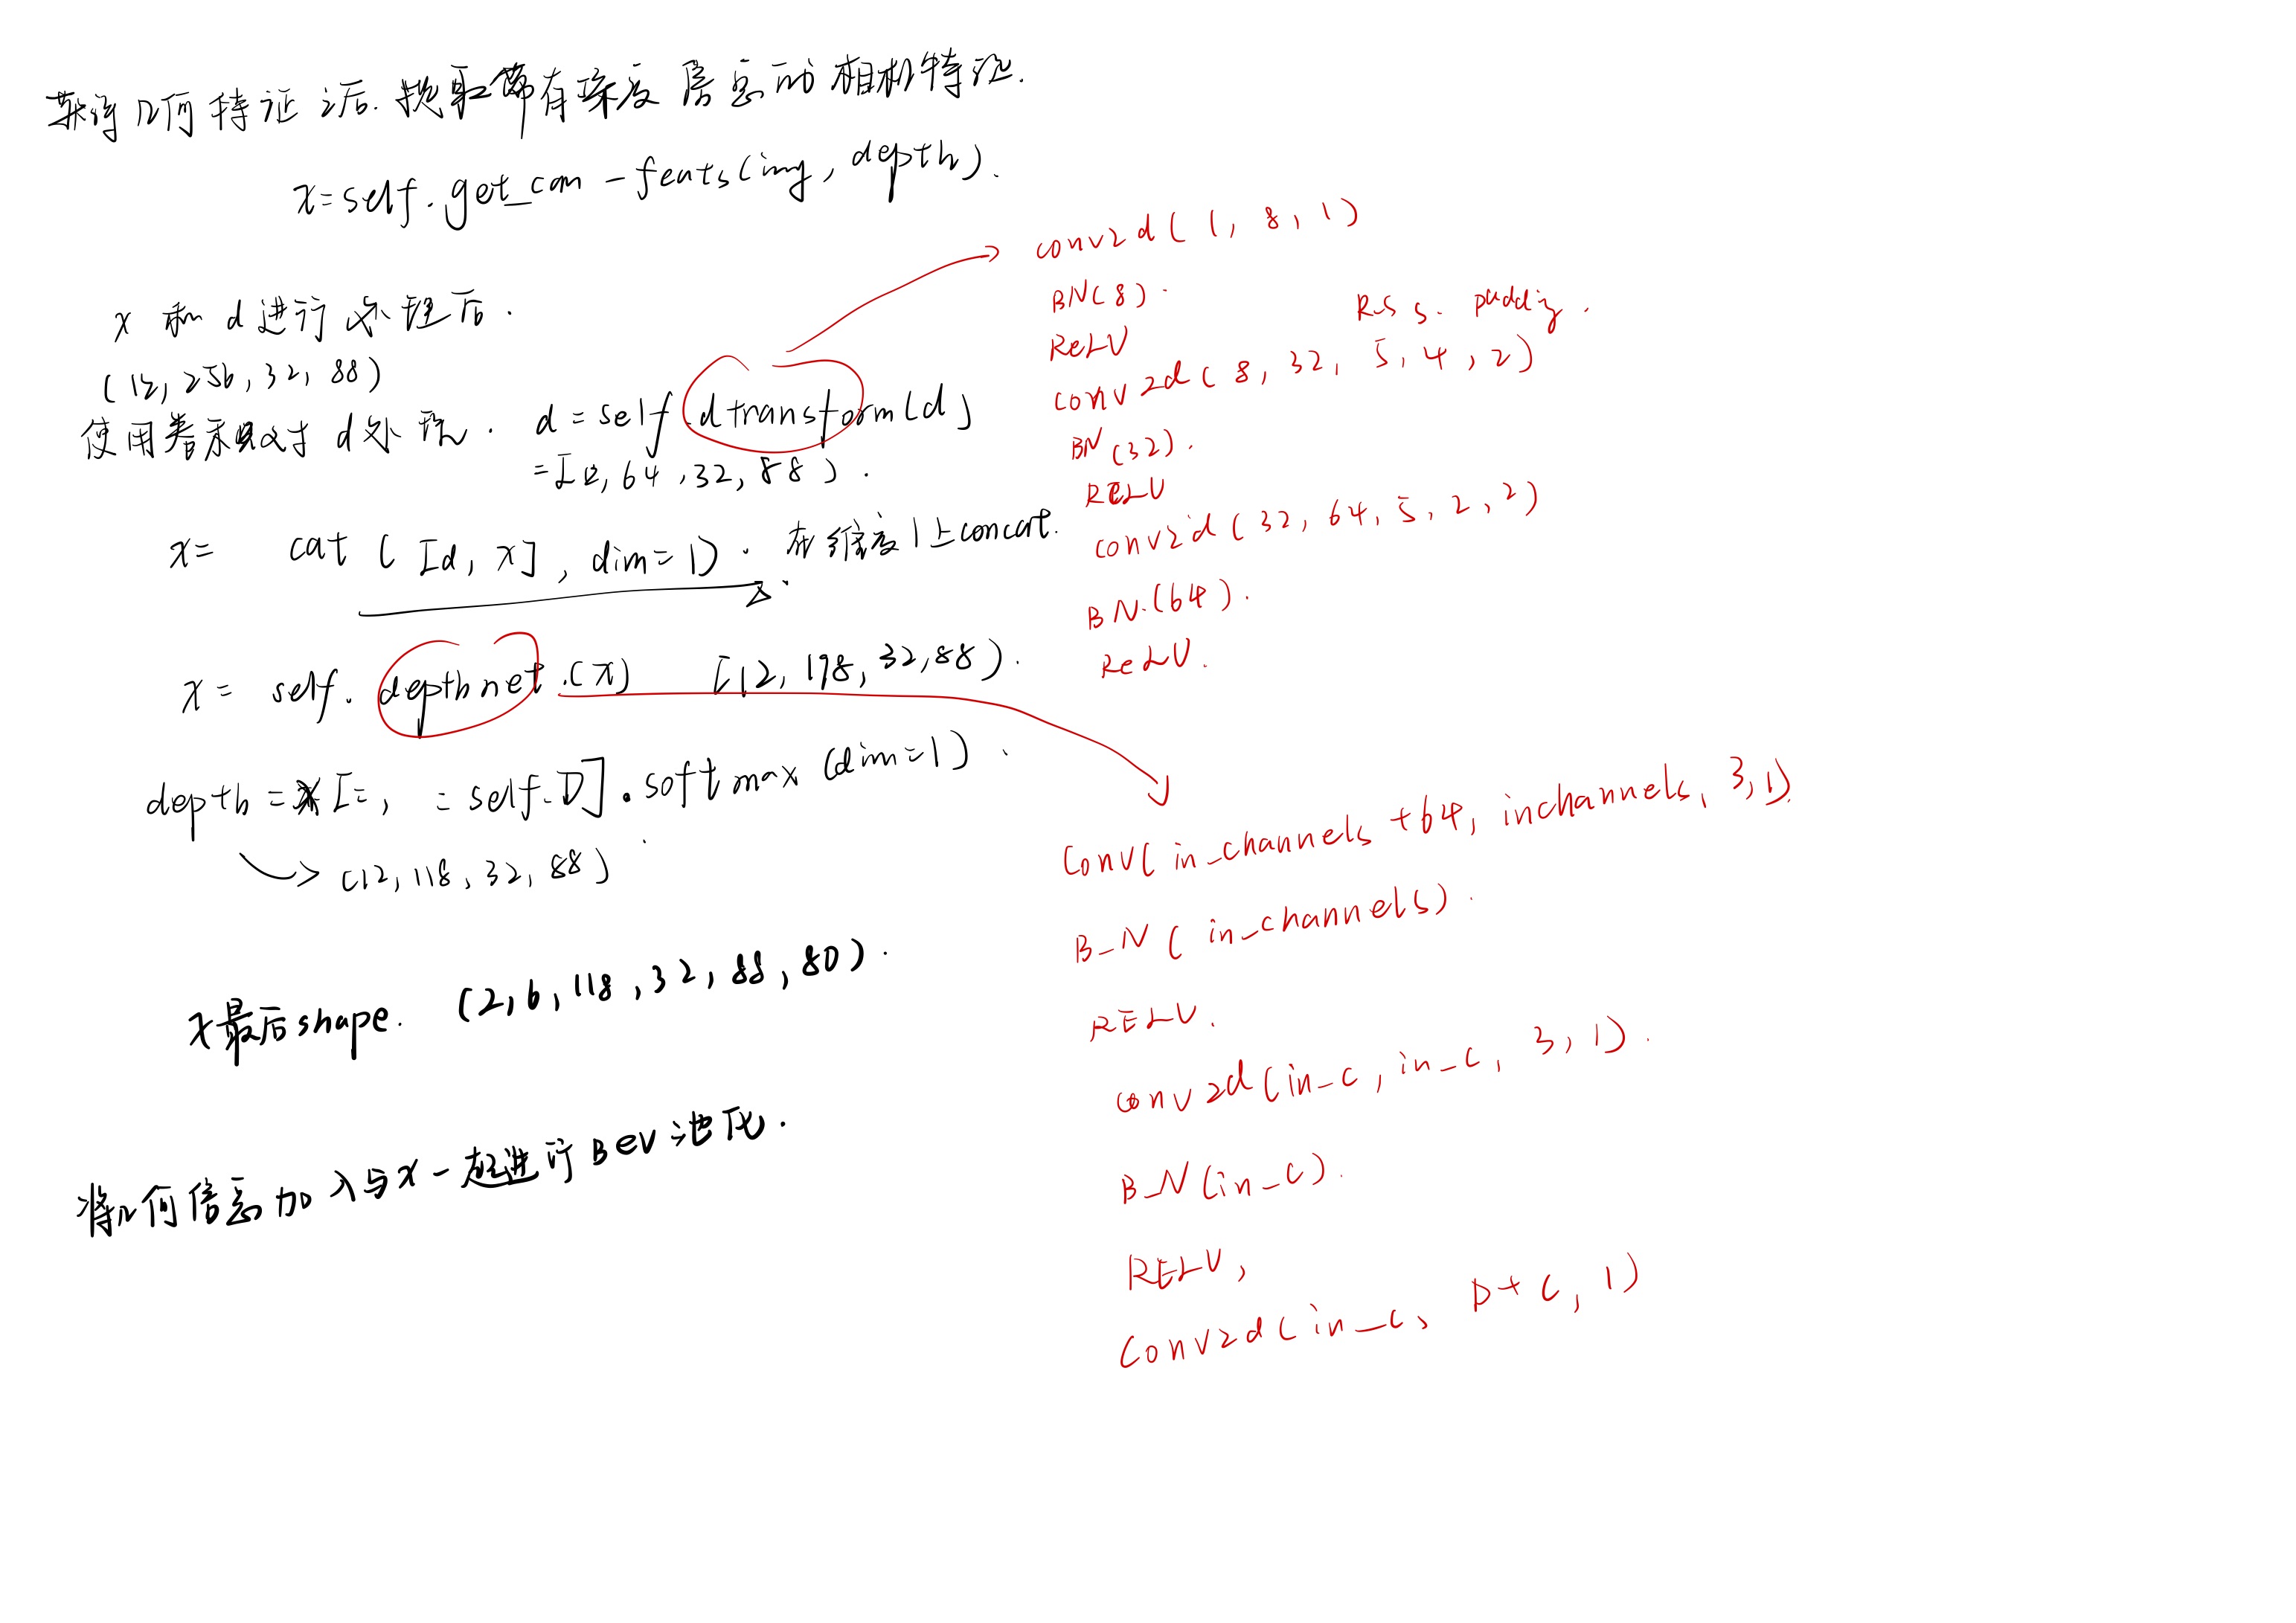 获得几何特征之后.提取带有深度信息的相机特征.
x=self.get_cam-feats(img,depth).
x 和 d 进行处理后.
(12,256,32,88)
使用卷积对 d 处理. d=self.dtransform(d]
=[12,64,32,88).
x= cat ([d,x],dim=1). 在维度1上concat.
x= self.depthnet.(x) [12,198,32,88).
depth=x[:, :self.D].softmax (dim=1).
(12,118,32,88)
x最后shape. (2,6,118,32,88,80).
将几何信息加入与x一起进行Bev池化.
conv2d(1,8,1)
BN(8).
ReLU
s. padding.
conv2d(8,32,5,4,2)
BN(32).
RELU
conv2d(32,64,5,2,2)
BN.(64).
ReLU.
Conv(in_channels+64,inchannels,3,1)
B_N(in_channels).
RELU.
conv2d(in_c,in_c,3,1).
B_N(in_c).
RELU,
Conv2d(in_c,D+C,1)